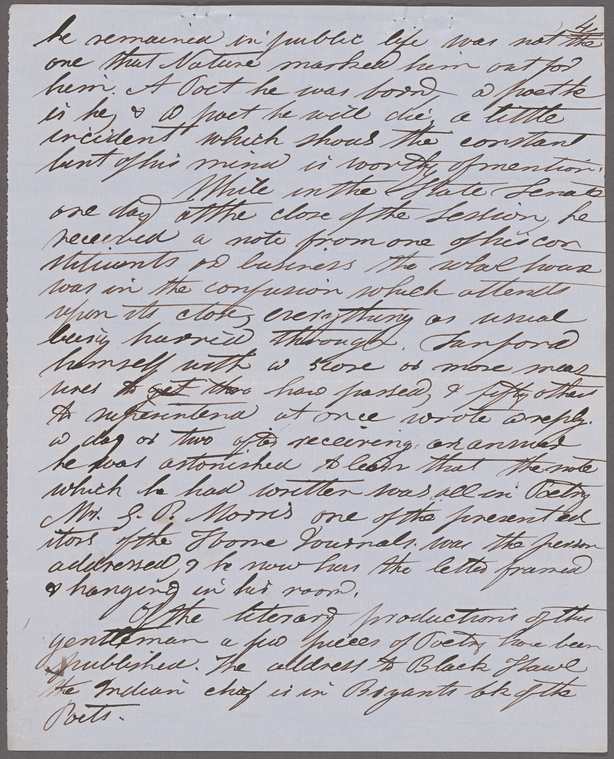 4
he remained in public life was not the
one that Nature marked him out for
him. A Poet he was born a poet he
is he, & a poet he will die, a little
incident which shows the constant
bent of his mind is worthy of mention.
While in the State Senate
one day at the close of the session, he
received a note from one of his con
stituents on business the whol house
was in the confusion which attends
upon its close, everything as usual
being hurried through. Sanford
himself with a score or more meas
ures to get thro have passed, & fifty others
to superintend at once wrote a reply.
a day or two after receiving an answer
he was astonished to learn that the note
which he had written was all in Poetry
Mr. G. P. Morris one of the present ed
itors of the Home Journals was the person
addressed, & he now has the letter framed
& hanging in his room.
Of the literary productions of this
gentleman a few pieces of Poetry have been
published. The address to Black Hawk
the Indian chief is in Bryants bk of the
Poets.